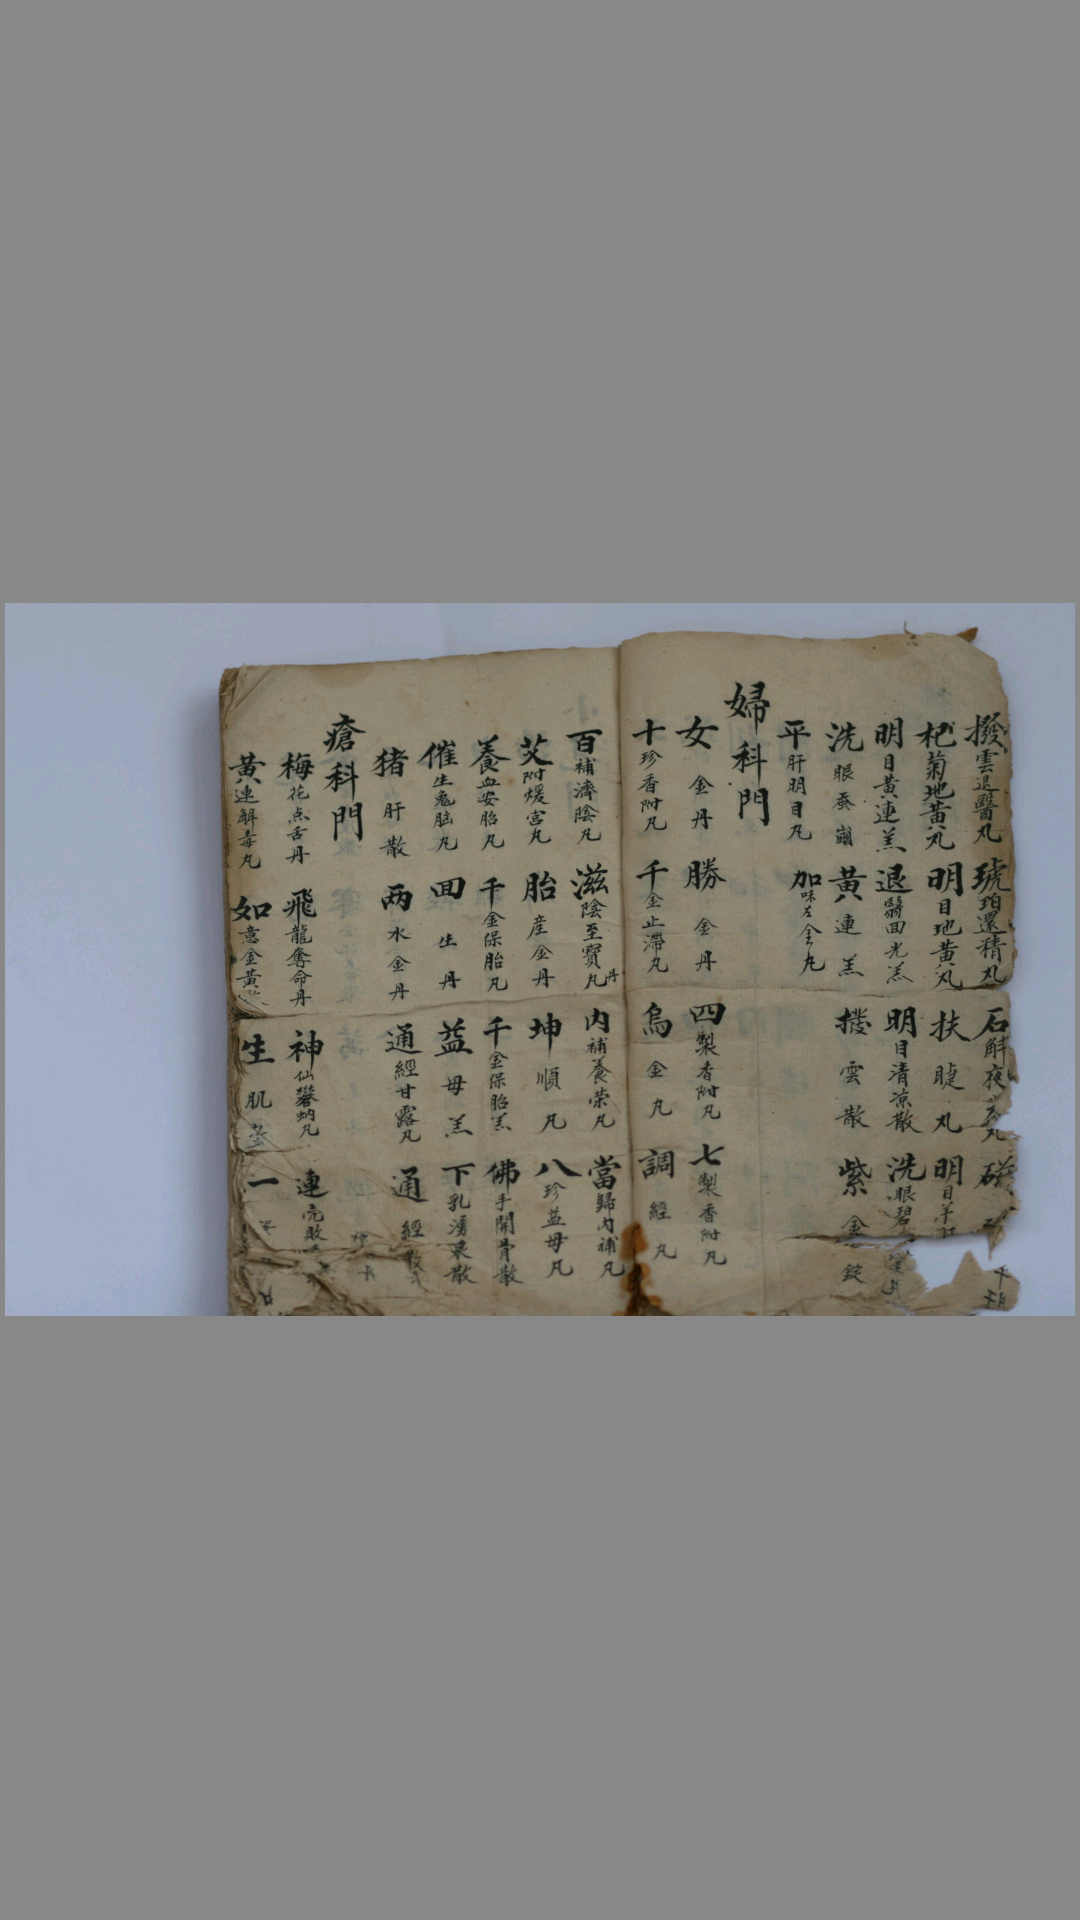 撥雲退翳丸 琥珀還精丸 石斛夜光丸 磁
杞菊地黃丸 明目地黃丸 扶睫丸 明目羊肝
明目黃連羔 退翳回光羔 明目清凉散 洗眼碧
洗眼蚕繭 黃連羔 撥雲散 紫金錠
平肝明目丸 加味左金丸
婦科門
女金丹 勝金丹 四製香附丸 七製香附丸
十珍香附丸 千金止滯丸 烏金丸 調經丸
百補濟陰丸 滋陰至寶丸丹 內補養荣丸 當歸內補丸
艾附煖宮丸 胎産金丹 坤順丸 八珍益母丸
養血安胎丸 千金保胎丸 千金保胎羔 佛手開骨散
催生兔腦丸 回生丹 益母羔 下乳湧泉散
猪肝散 两水金丹 通經甘露丸 通經散
瘡科門
梅花点舌丹 飛龍奪命丹 神仙蟾蚋丸 連壳敗
黃連解毒丸 如意金黃散 生肌 一